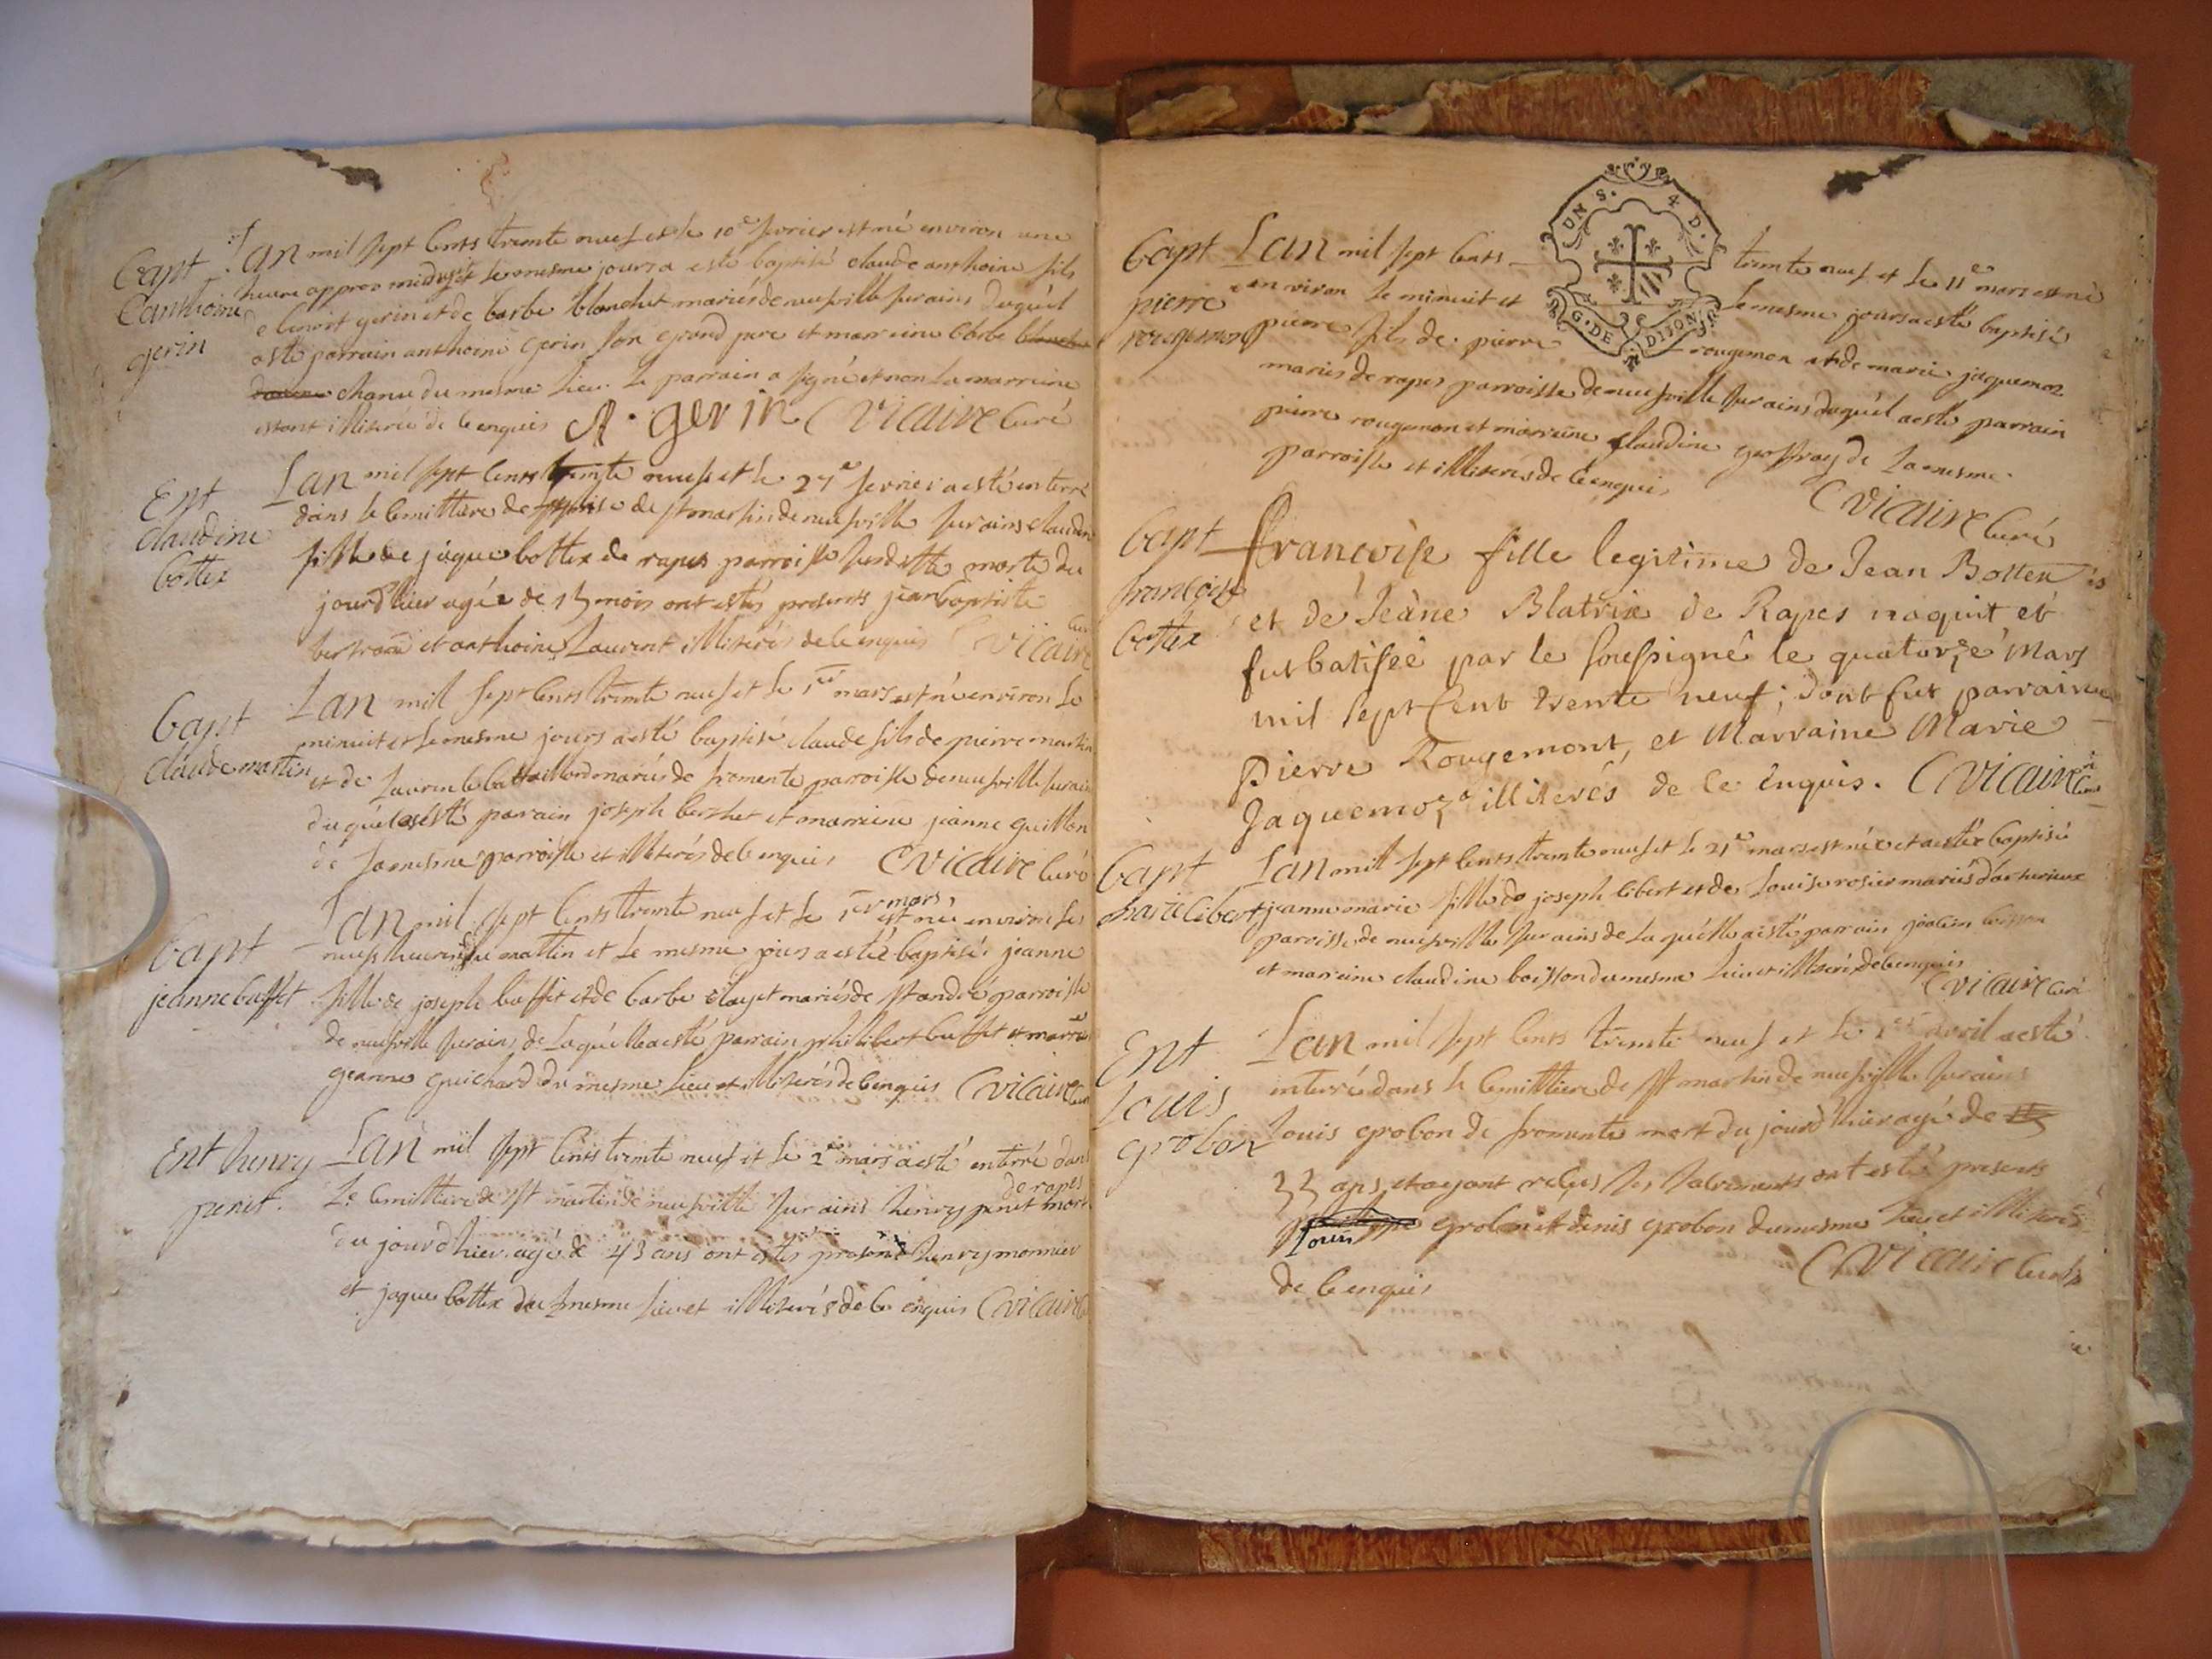 bapt
C anthoine
gerin
Lan mil sept cents trente neuf et le 10e fevrier est né environ une
heure appres midy et le mesme jours a esté baptisé claude anthoine fils
de benoit gerin et de barbe blanchet mariés de neufville sur ains duquel
a esté parrain anthoine gerin son grand pere et marreine barbe
chanu du mesme lieu le parrain a signé et non la marreine
estant illiterée de ce enquis A. gerin C vicaire Curé
Ent
claudine
bottex
Lan mil sept cents trente neuf et le 27e fevrier a esté enterré
dans le cemittiere de de st martin de neufville sur ains claudine
fille de jaque bottex de rapes parroisse susditte morte du
jourdhier agée de 13 mois ont estés presents jean baptiste
bertrand et anthoine Laurent illiterés de ce enquis C vicaire
bapt
claude martin
Lan mil sept cents trente neuf et le 1er mars est né environ le
minuit et le mesme jours a esté baptisé claude fils de pierre martin
et de laurence battaillard mariés de fromente parroisse de neufville sur ains
duquel a esté parain joseph berthet et marreine jeanne guillon
de la mesme parroisse et illiterés de ce enquis C vicaire Curé
bapt
jeanne buffet
Lan mil sept cents trente neuf et le 1er mars est née environ les
neufs heures du mattin et le mesme jours a estée baptisée jeanne
fille de joseph buffet et de barbe mariés de st andré parroisse
de neufville sur ains de laquelle a esté parrain philibert buffet et marreine
jeanne guichard du mesme lieu et illiterés de ce enquis C vicaire
Ent henry
penit.
Lan mil sept cents trente neuf et le 2e mars a esté enterré dans
le cemittiere de st martin de neufville sur ains henry penit de rapes mort
du jourdhier agé de 43 ans ont estés presents henry monnier
et jaque bottex du mesme lieu et illiterés de ce enquis C vicaire
UN S. 4 D.
G. DE DIJON
bapt
pierre
rougemont
Lan mil sept cents trente neuf et le 11e mars est né
environ le minuit et le mesme jours a esté baptisé
pierre fils de pierre rougemon et de marie jaquemoz
mariés de rapes parroisse de neufville sur ains duquel a esté parrain
pierre rougemon et marreine claudine geoffray de la mesme
parroisse et illiterés de ce enquis
C vicaire Curé
bapt
françoise
bottex
françoise fille legitime de Jean Bottex
et de Jeane Blatrix de Rapes naquit et
fut batisée par le soussigné le quatorze Mars
mil sept cent trente neuf; dont fut parrain
Pierre Rougemont, et Marraine Marie
Jaquemoz illiterés de ce enquis. C vicaire
bapt
marie libert
Lan mil sept cents trente neuf et le 21e mars est née et a estée baptisée
jeanne marie fille de joseph libert et de Louise rosier mariés
parroisse de neufville sur ains de laquelle a esté parrain
et marreine claudine boisson du mesme lieu et illiterés de ce enquis
C vicaire Curé
Ent
Louis
grobon
Lan mil sept cents trente neuf et le 1er avril a esté
enterré dans le cemittiere de st martin de neufville sur ains
Louis grobon de fromente mort du jourdhier agé de
33 ans et ayant reçus les sacrements ont esté presents
Louis grobon et denis grobon du mesme lieu et illiterés
de ce enquis
C vicaire Curé